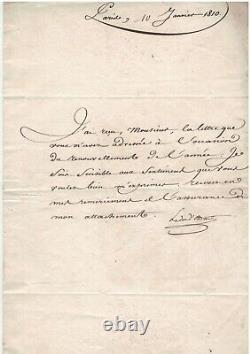 Paris, 10 Janvier 1810.
J'ai reçu, Monsieur, la lettre que
vous m'avez adressée à l'occasion
du renouvellement de l'année. Je
suis sensible aux sentimens que vous
voulez bien m'exprimer, recevez-en
mes remercimens et l'assurance de
mon attachement.
ebay.com